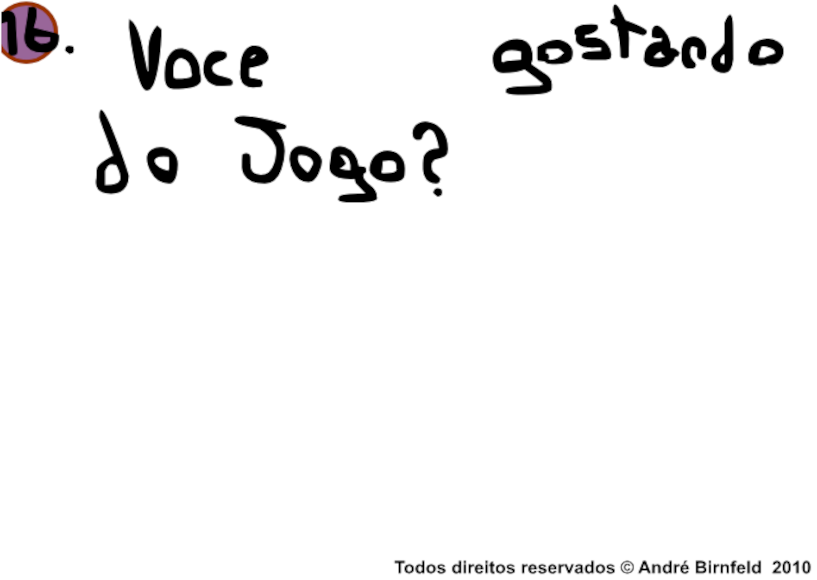 16. Voce gostando
do Jogo?
Todos direitos reservados © André Birnfeld 2010